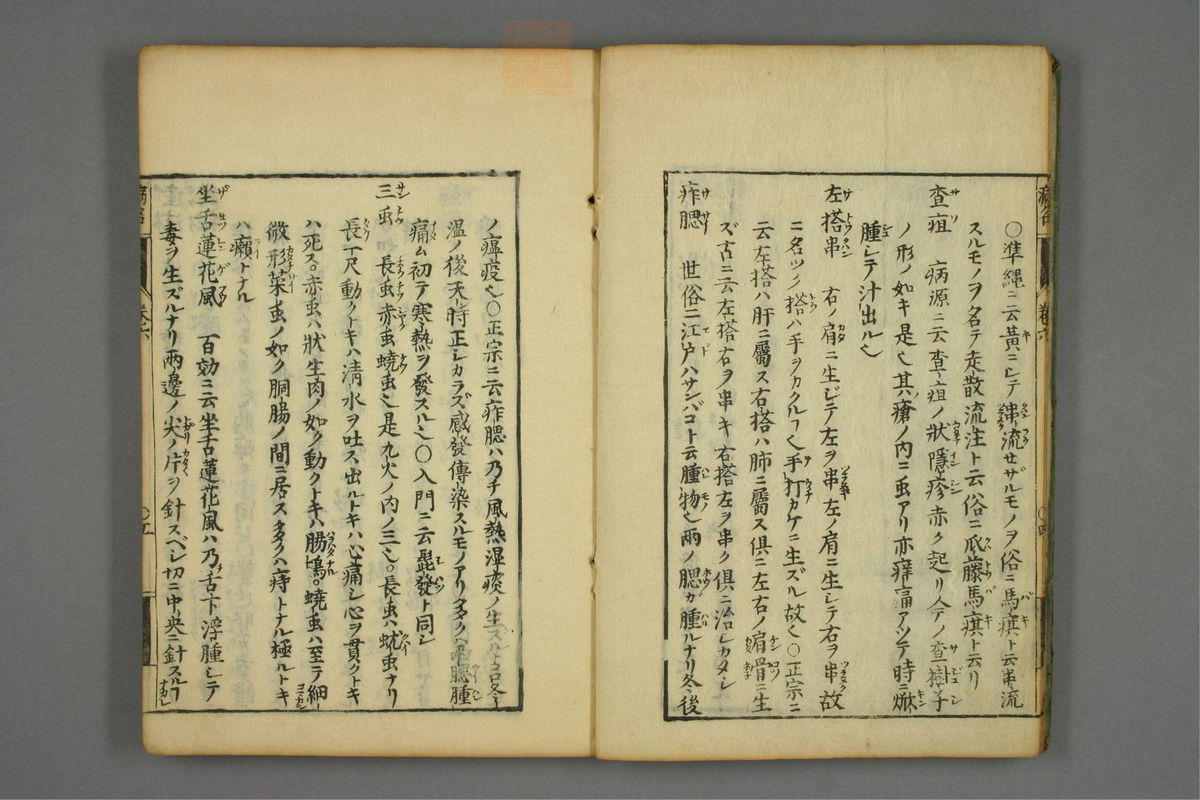 ○準縄ニ云黄ニシテ串流セザルモノヲ俗ニ馬㾎ト云串流
スルモノヲ名テ走散流注ト云俗ニ瓜藤馬㾎ト云リ
査疽 病源ニ云査疽ノ狀隱疹赤ク起リ人テノ査樜子
ノ形ノ如キ是也其瘡ノ内ニ虫アリ亦痒痛アツテ時ニ焮
腫シテ汁出ル也
左搭串 右ノ肩ニ生ジテ左ヲ串左ノ肩ニ生シテ右ヲ串故
ニ名ツク搭ハ手ヲカクルヿ也手打カケニ生ズル故也○正宗ニ
云左搭ハ肝ニ屬ス右搭ハ肺ニ屬ス俱ニ左右ノ肩骨ニ生
ズ古ニ云左搭右ヲ串キ右搭左ヲ串ク俱ニ治シカタシ
痄腮 世俗ニ江戸ハサンバコト云腫物也両ノ腮ガ腫ルナリ冬後
ノ瘟疫也○正宗ニ云痄腮ハ乃チ風熱湿痰ノ生スル所冬
温ノ後天時正シカラズ感發傳染スルモノアリ多クハ両腮腫
痛ム初テ寒熱ヲ發スル也○入門ニ云髭發ト同シ
三虫 長虫赤虫蟯虫也是九虫ノ内ノ三也○長虫ハ蚘虫ナリ
長一尺動クトキハ清水ヲ吐ス出ルトキハ心痛シ心ヲ貫クトキ
ハ死ス○赤虫ハ狀生肉ノ如ク動クトキハ腸鳴○蟯虫ハ至テ細
微形菜虫ノ如ク胴腸ノ間ニ居ス多クハ痔トナル極ルトキ
ハ癩トナル
坐舌蓮花風 百効ニ云坐舌蓮花風ハ乃舌下浮腫シテ
毒ヲ生ズルナリ兩邊ノ尖ノ片ヲ針スベシ切ニ中央ニ針スルヿ
巻六